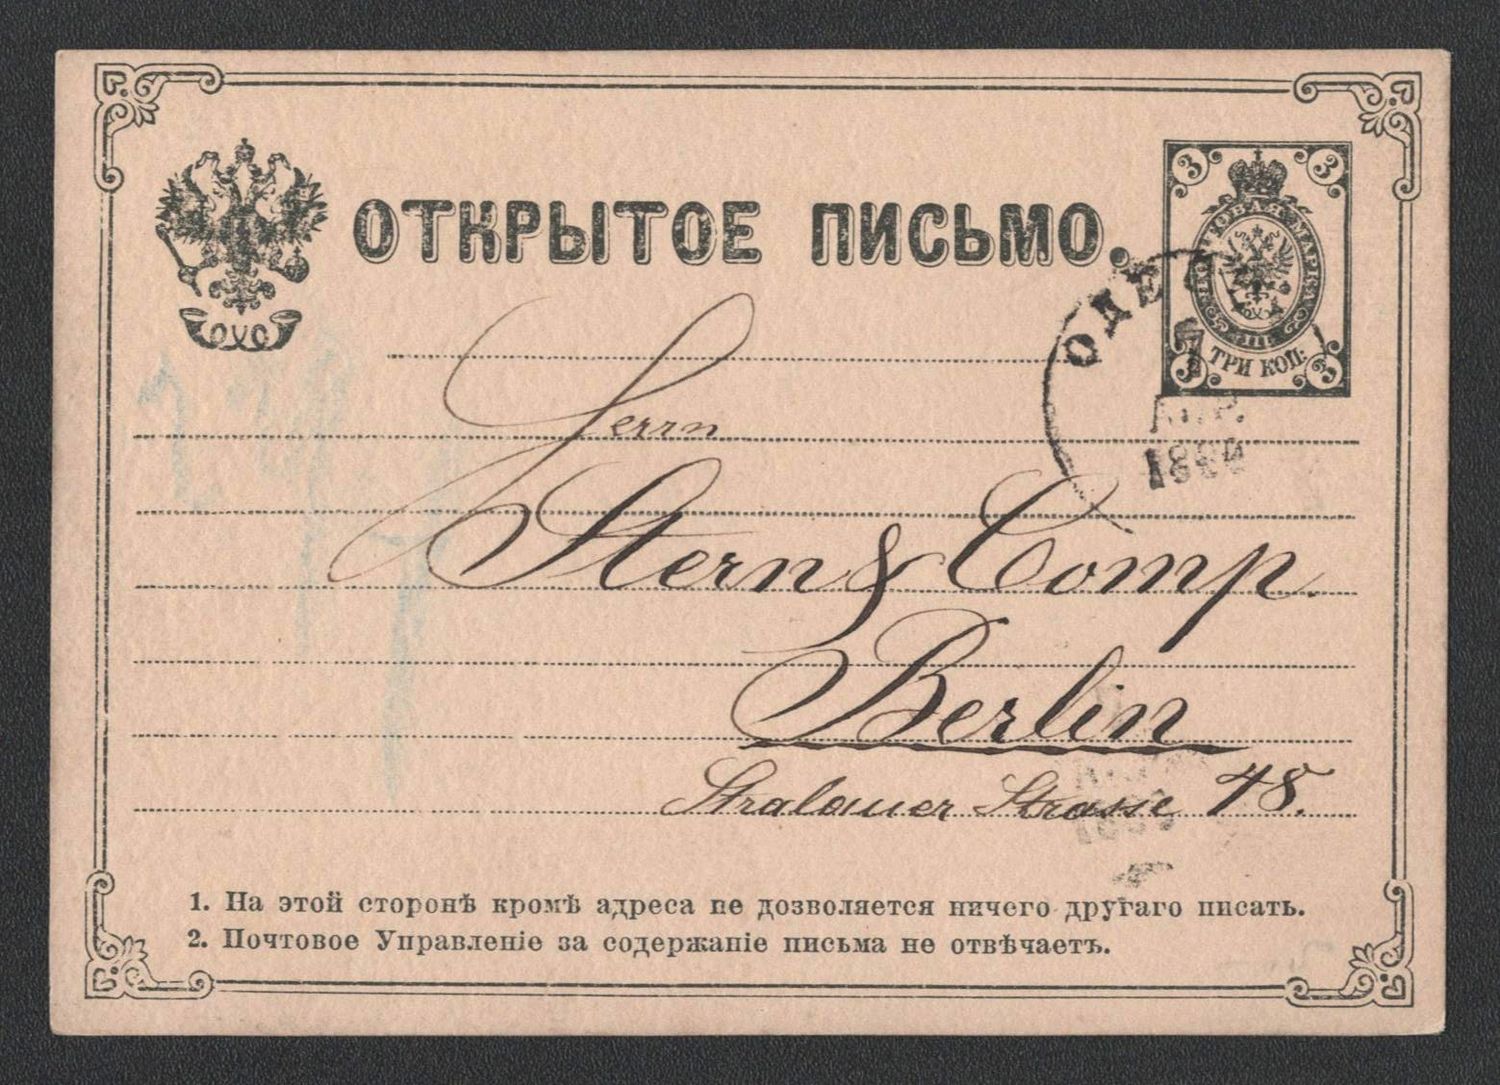 ОТКРЫТОЕ ПИСЬМО.
3 3
ПОЧТОВАЯ МАРКА
ТРИ КОП:
3 3
ОДЕ
7
АПР.
Herrn
Stern & Comp.
Berlin
Stralauer Strasse 48.
1. На этой сторонѣ кромѣ адреса не дозволяется ничего другаго писать.
2. Почтовое Управленіе за содержаніе письма не отвѣчаетъ.